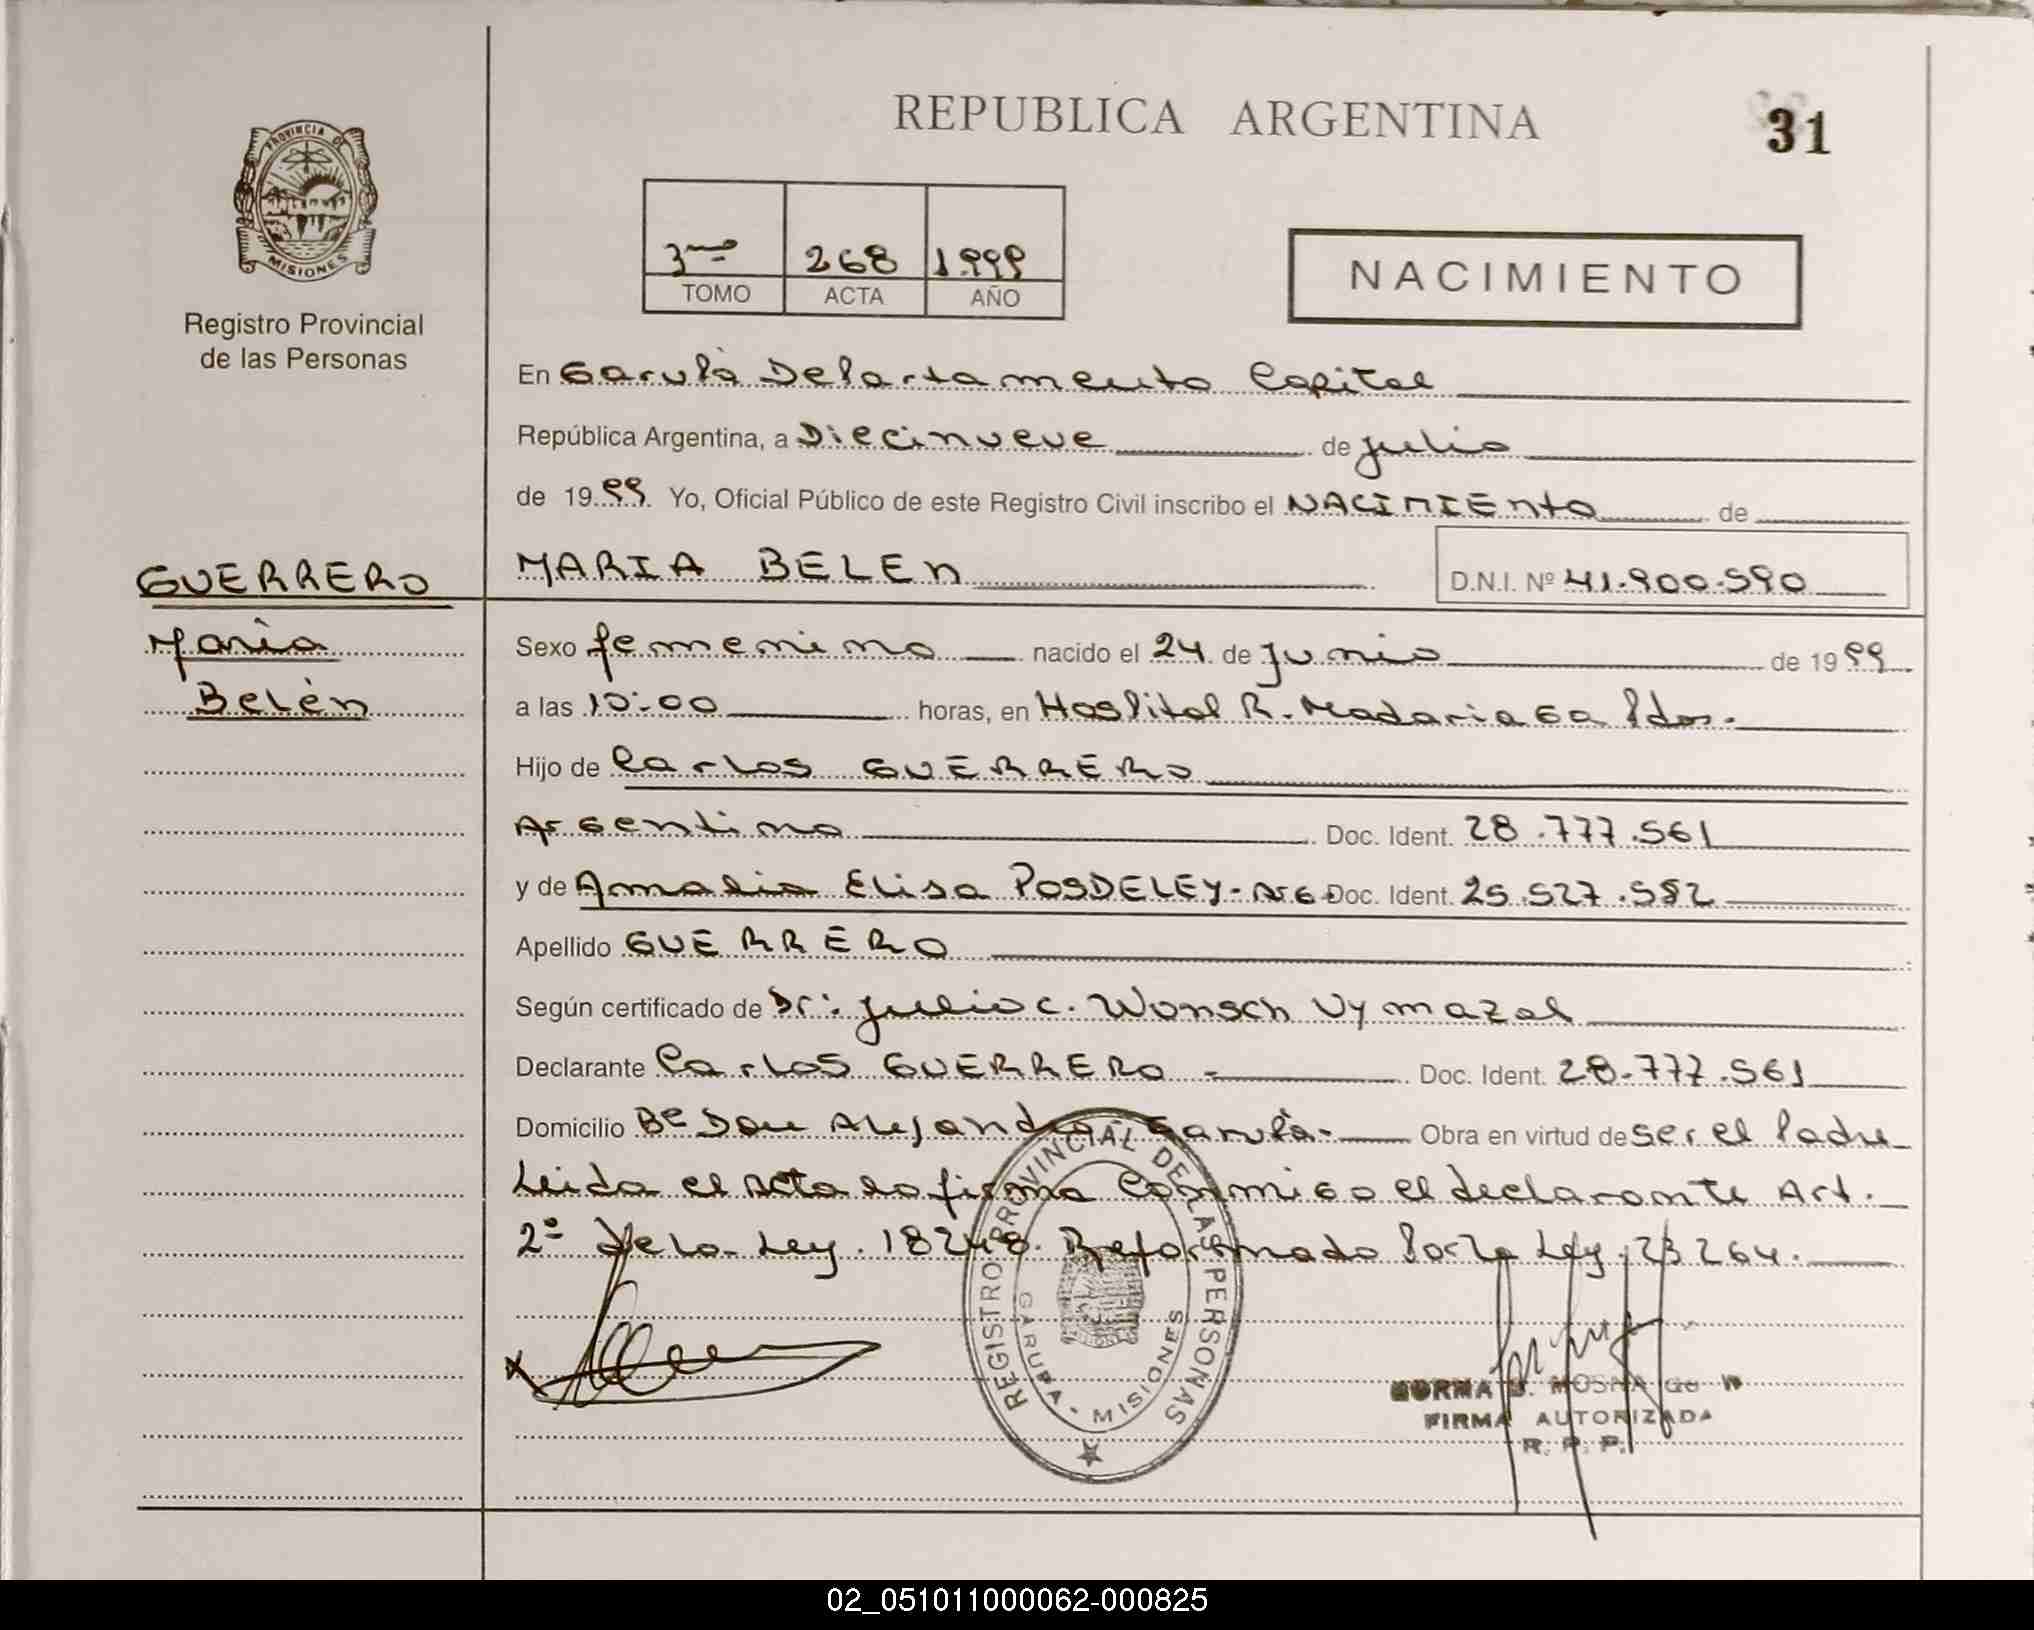 REPUBLICA ARGENTINA
31
PROVINCIA DE
MISIONES
Registro Provincial
de las Personas
3ro 268 1.999
TOMO ACTA AÑO
NACIMIENTO
En Garupà Departamento Capital
República Argentina, a Diecinueve de julio
de 1999 Yo, Oficial Público de este Registro Civil inscribo el NACIMIEnto de
GUERRERO
MARIA BELEN
D.N.I. Nº 41.900.590
Maria
Sexo femenino nacido el 24 de Junio de 1999
Belén
a las 10:00 horas, en Hospital R. Madariaga Pdas.
Hijo de Carlos GUERRERO
Argentino Doc. Ident. 28.777.561
y de Amalia Elisa POSDELEY - Arg Doc. Ident. 25.527.582
Apellido GUERRERO
Según certificado de Dr: Julio C. Wonsch Vymazal
Declarante Carlos GUERRERO - Doc. Ident. 28.777.561
Domicilio Bº Don Alejandro Garupà- Obra en virtud de ser el Padre
Leida el acta la firma Conmigo el declarante Art.
2º de la Ley. 18248. Reformado Por la Ley. 23264.
REGISTRO PROVINCIAL DE LAS PERSONAS
GARUPA - MISIONES
NORMA
FIRMA AUTORIZADA
R. P. P.
02_051011000062-000825